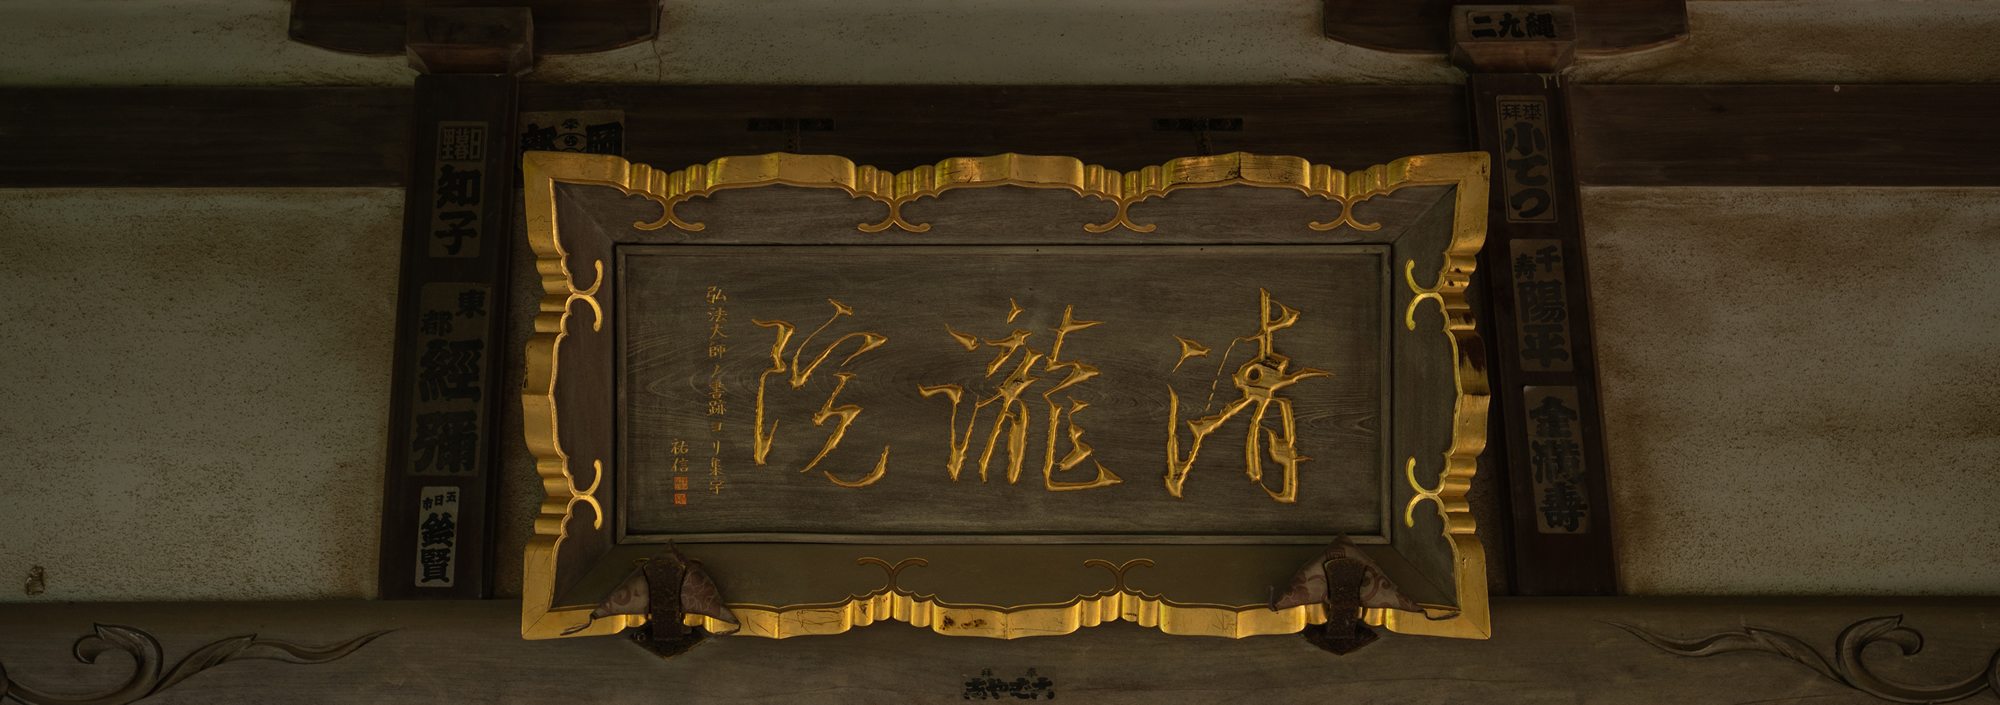 清瀧院
弘法大師ノ書跡ヨリ集字
祐信
縄九二
小てつ
千壽
陽平
金満壽
知子
東都
經彌
五日市
鈴賢